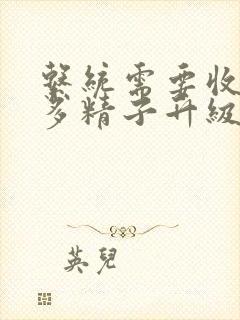 繫統需要收
多精子升級
英兒